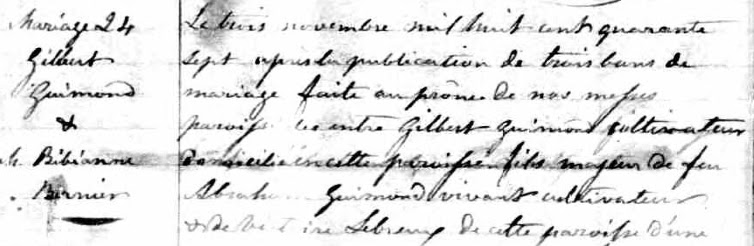 Mariage 24
Gilbert
Guimond
&
Bibianne
Bernier
Le trois novembre mil huit cent quarante
sept après la publication de trois bans de
mariage faite au prône de nos messes
paroissiales entre Gilbert Guimond cultivateur
domicilié en cette paroisse fils majeur de feu
Abraham Guimond vivant cultivateur
& de Lebreux de cette paroisse d'une